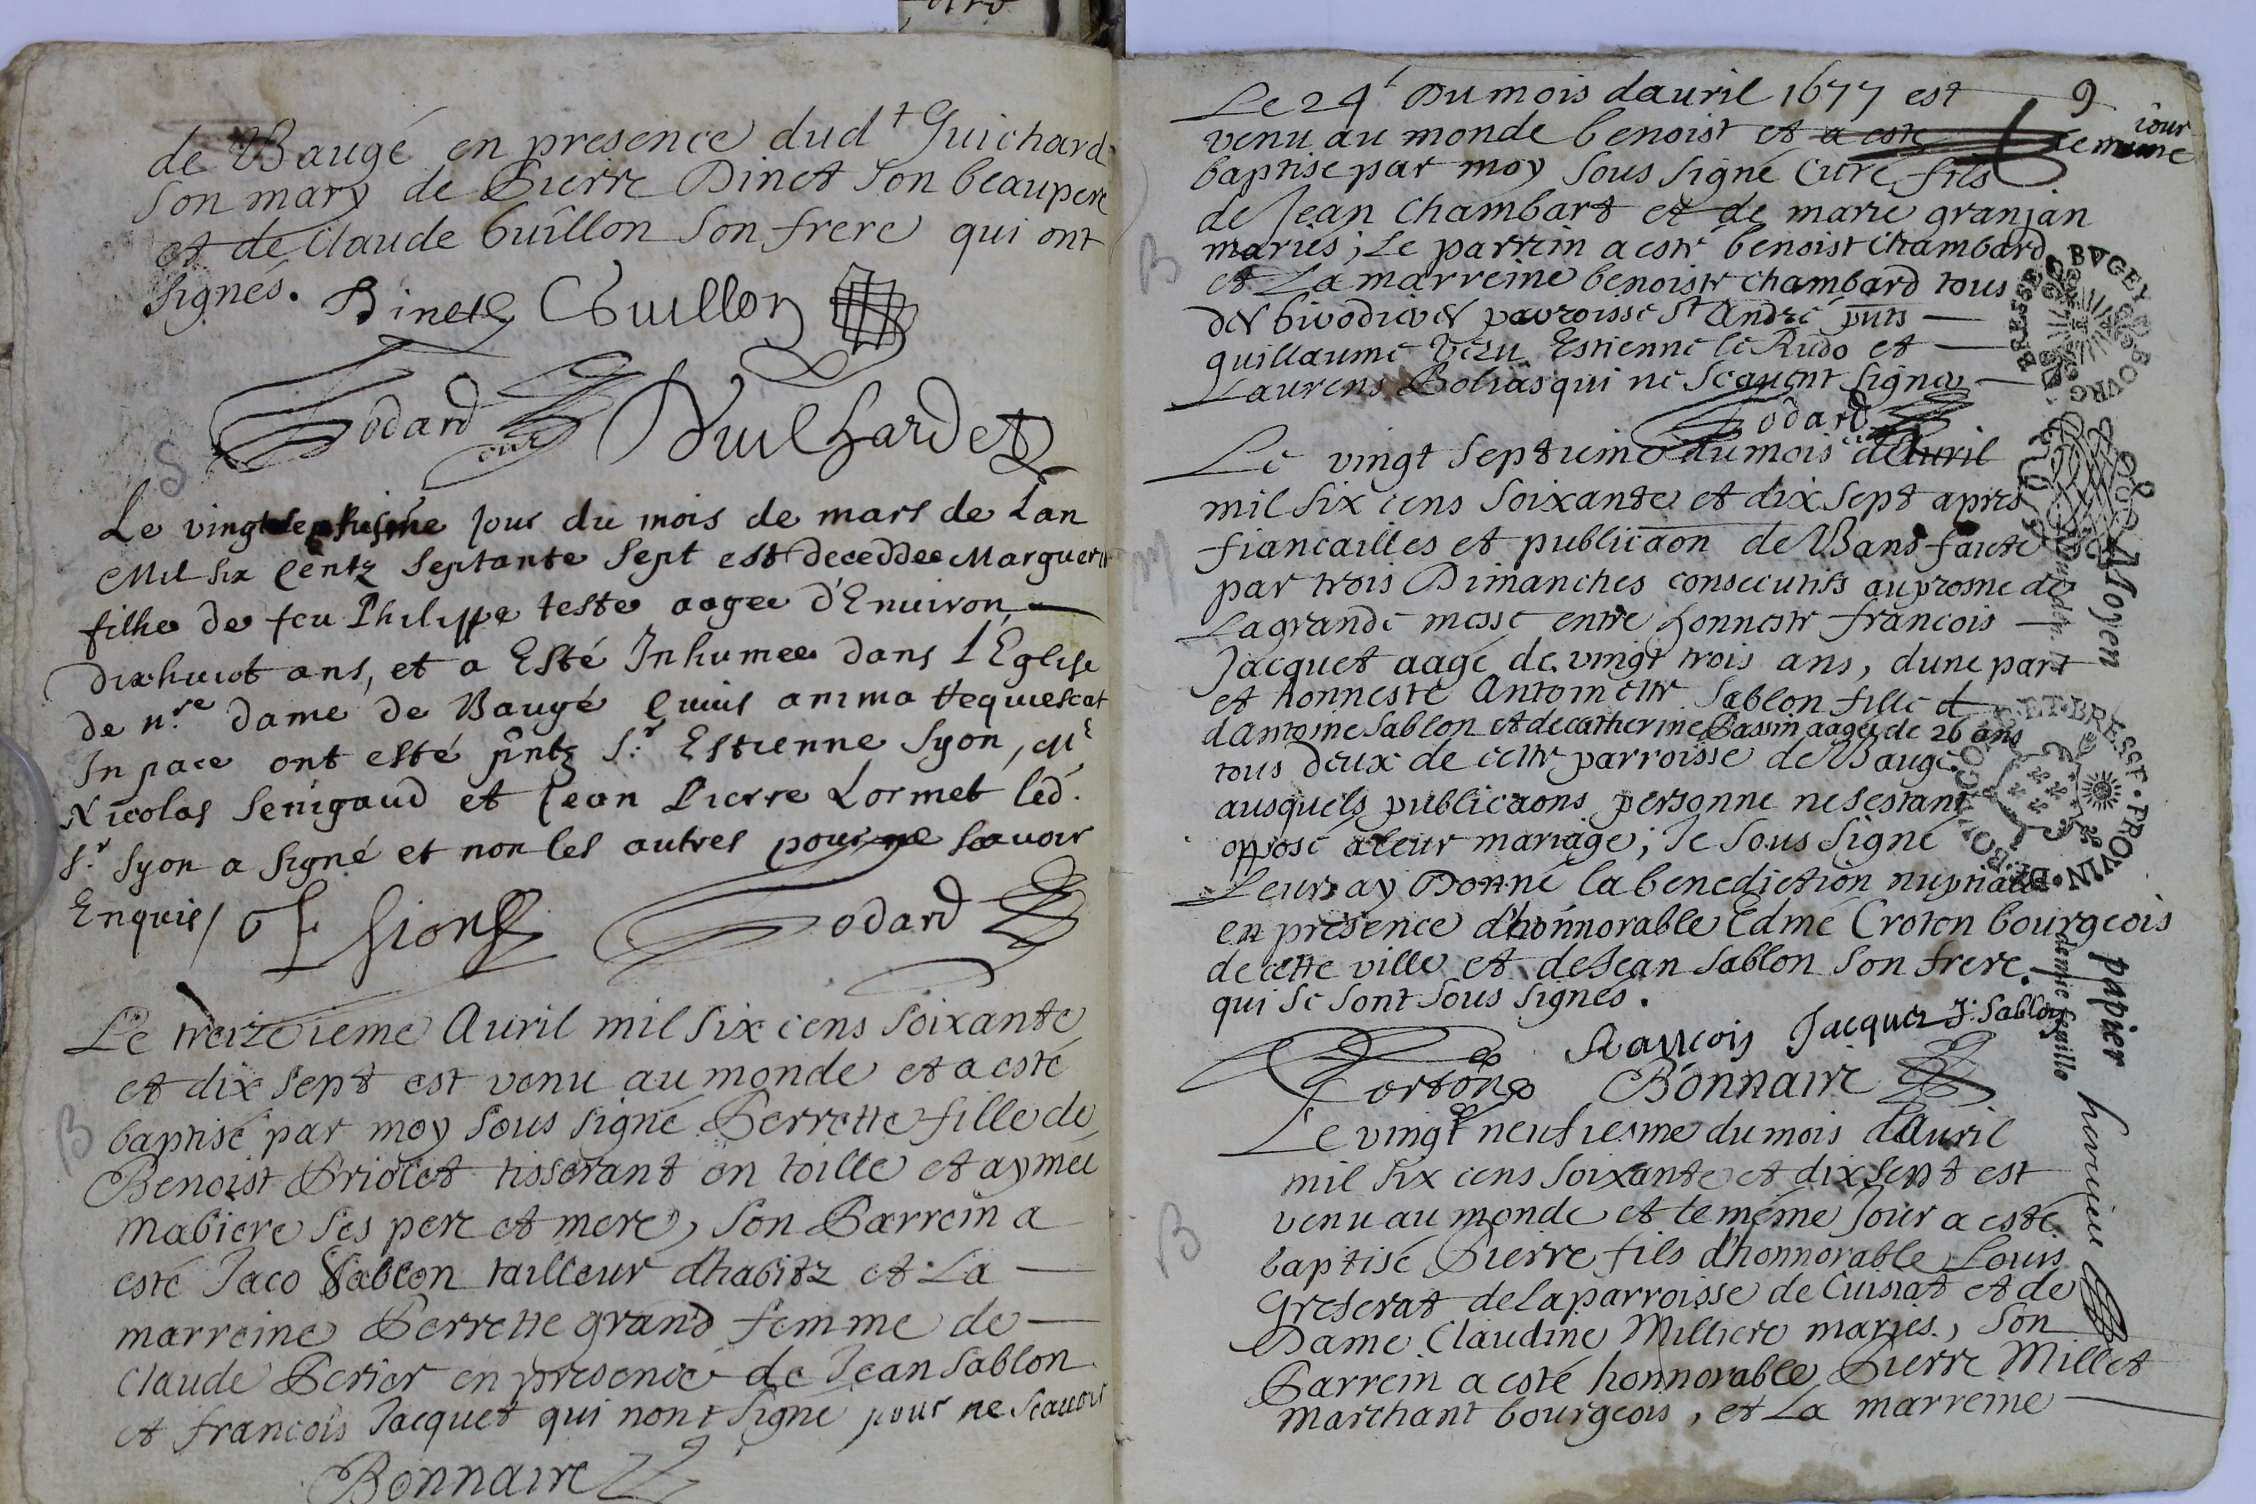 de Baugé en presence dudt Guichard
son mary de Pierre Dinet son beaupere
et de Claude Guillon son frere qui ont
signés. Binet CGuillon
Godard curé Guilhardet
Le vingtseptiesme jour du mois de mars de Lan
Mil six centz septante sept est deceddee Marguerite
filhe de feu Philippe teste aagee d'Enuiron
dixhuict ans, et a Esté Inhumee dans l'Eglise
de nre dame de Baugé Cuius anima requiescat
In pace ont esté pntz Sr Estienne Syon, Me
Nicolas Senigaud et Jean Pierre Lormet led.
Sr Syon a signé et non les autres pour ne sauoir
Enquis / E Sion Godard
Le treizeieme Auril mil six cens soixante
et dix sept est venu au monde et a esté
baptisé par moy sous signé Perrette fille de
Benoist Briolet tisserant en toille et aymee
Mabiere ses pere et mere, son Parrein a
esté Jaco Sablon tailleur d'habitz et La
marreine Perrette grand femme de
Claude Perier en presence de Jean Sablon
et francois Jacquet qui nont signé pour ne scauoir
Bonnaire
9
Le 24 Du mois dauril 1677 est
venu au monde benoist et a esté le mesme jour
baptise par moy sous signé Curé, fils
de Jean Chambart et de marie granjan
mariés; Le parrein a esté benoist Chambard
et La marreine benoiste chambard tous
paroisse St André pnts
guillaume Estienne et
Laurens qui ne scauent signer
Godard
Le vingt septieme du mois dauril
mil six cens soixante et dix sept apres
fiancailles et publicaon de Bans faicte
par trois Dimanches consecutifs au prosne de
La grande messe entre honneste francois
Jacquet aagé de vingt trois ans, dune part
et honneste Antoinette Sablon fille d
dantoine Sablon et de catherine Bassin aagée de 26 ans
tous deux de cette parroisse de Baugé
ausquels publicaons personne nesestant
opposé a leur mariage; Je sous signé
Leurs ay Donné la benediction nuptiale
en presence d'honnorable Edmé Croton bourgeois
de cette ville et de Jean Sablon son frere.
qui se sont sous signés.
francois Jacquet J. Sablon
Bonnaire
Le vingt neufiesme du mois dAuril
mil six cens soixante et dix sept est
venu au monde et le méme Jour a esté
baptisé Pierre fils d'honnorable Louis
Greserat de la parroisse de Cuisiat et de
Dame Claudine Milliere mariés, son
Parrein a esté honnorable Pierre Millet
Marchant bourgeois, et La marreine
BRESSE BVGEY BOVRG
Moyen papier
demie feuille
BRESSE PROVIN